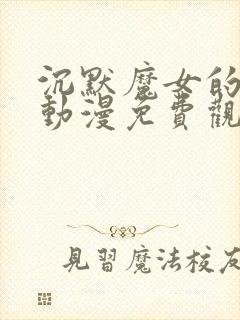 沉默魔女的
動漫免費觀
見習魔法校友